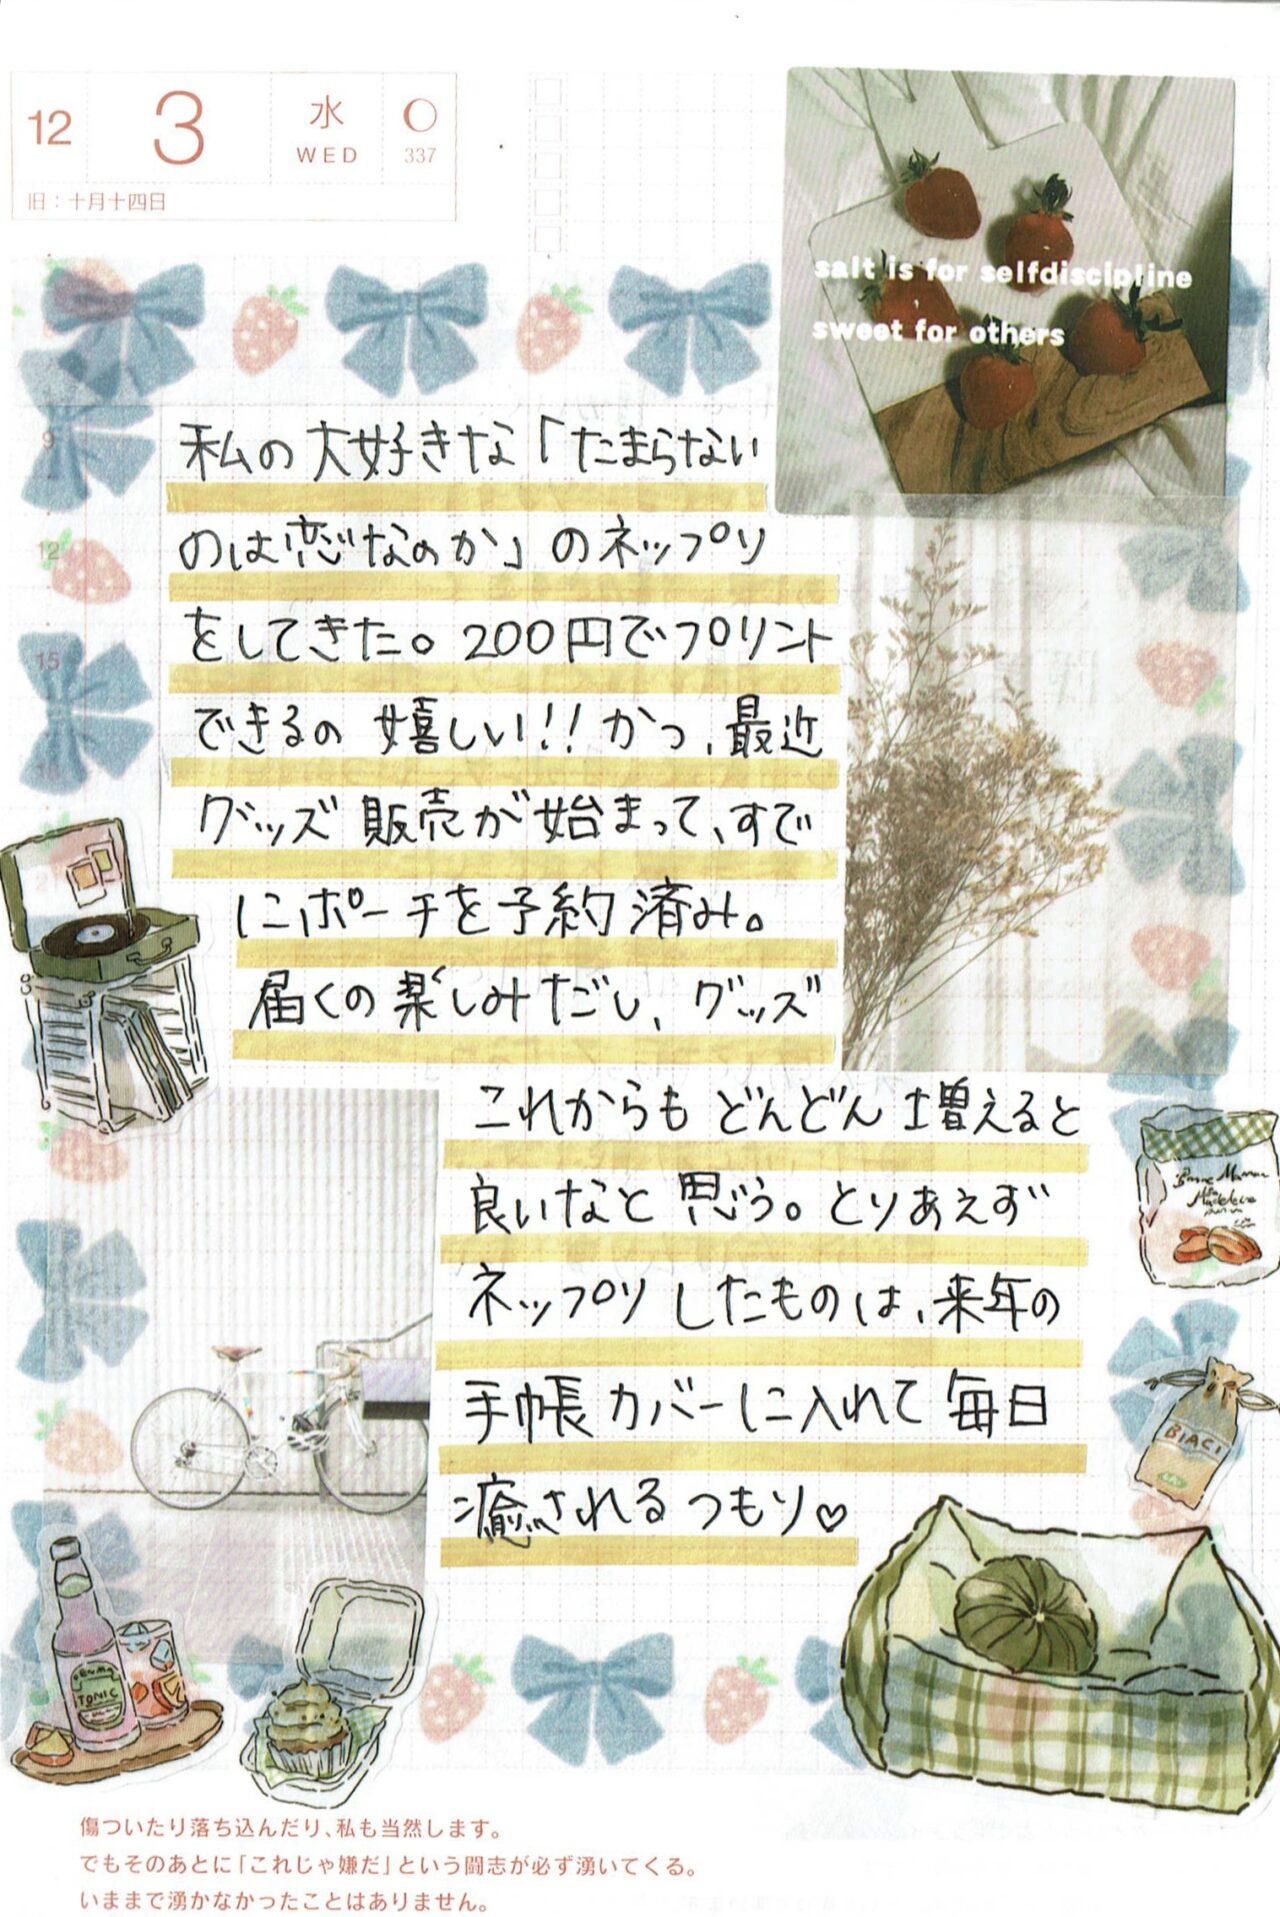 12 3 水 WED 337
旧：十月十四日
salt is for selfdiscipline
sweet for others
私の大好きな「たまらない
のは恋なのか」のネップリ
をしてきた。200円でプリント
できるの嬉しい!! かつ、最近
グッズ販売が始まって、すで
にポーチを予約済み。
届くの楽しみだし、グッズ
これからもどんどん増えると
良いなと思う。とりあえず
ネップリしたものは、来年の
手帳カバーに入れて毎日
癒されるつもり♡
9
12
15
18
21
Bonne Maman
Madeleine
BIACI
TONIC
傷ついたり落ち込んだり、私も当然します。
でもそのあとに「これじゃ嫌だ」という闘志が必ず湧いてくる。
いままで湧かなかったことはありません。